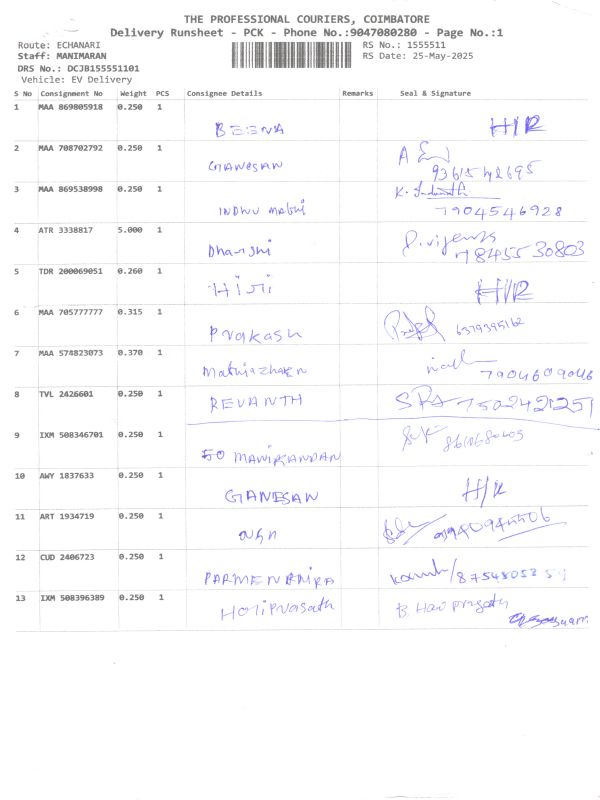 THE PROFESSIONAL COURIERS, COIMBATORE
Delivery Runsheet - PCK - Phone No.:9047080280 - Page No.:1
Route: ECHANARI RS No.: 1555511
Staff: MANIMARAN RS Date: 25-May-2025
DRS No.: DCJB155551101
Vehicle: EV Delivery
S No Consignment No Weight PCS Consignee Details Remarks Seal & Signature
1 MAA 869805918 0.250 1
BEENA H/R
2 MAA 708702792 0.250 1
GANESAN
3 MAA 869538998 0.250 1
INDHU Mathi 7904546928
4 ATR 3338817 5.000 1
Dharshi 7845530803
5 TDR 200069051 0.260 1
HIJI H/R
6 MAA 705777777 0.315 1
Prakash 6379395162
7 MAA 574823073 0.370 1
7904609046
8 TVL 2426601 0.250 1
REVANTH 7502421251
9 IXM 508346701 0.250 1
MANIKANDAN
10 AWY 1837633 0.250 1
GANESAN H/R
11 ART 1934719 0.250 1
12 CUD 2406723 0.250 1
13 IXM 508396389 0.250 1
B Hari prasath